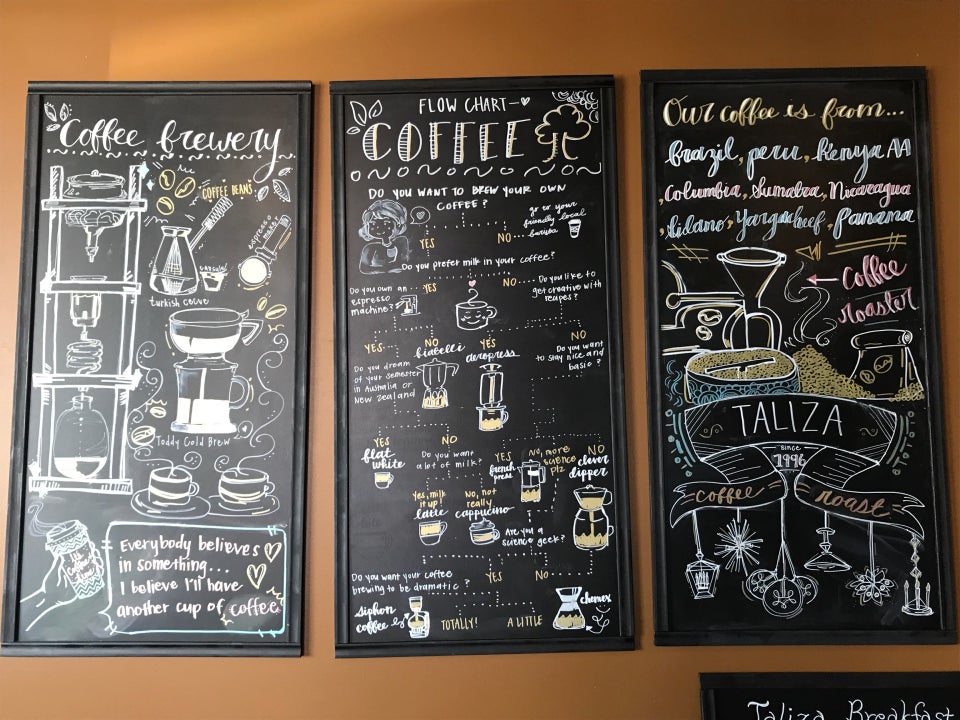 Coffee brewery
COFFEE BEANS
espresso maker
capsule
turkish cezve
Toddy Cold Brew
Everybody believes
in something...
I believe I'll have
another cup of coffee
FLOW CHART
COFFEE
DO YOU WANT TO BREW YOUR OWN
COFFEE?
go to your
friendly local
barista
YES
NO
Do you prefer milk in your coffee?
Do you own an
espresso
machine?
YES
NO
Do you like to
get creative with
recipes?
YES
NO
bialetti
YES
aeropress
NO
Do you want
to stay nice and
basic?
Do you dream
of your semester
in Australia or
New Zealand
YES
flat
white
NO
Do you want
a lot of milk?
YES
french
press
No, more
science
plz
NO
clever
dipper
Yes, milk
it up!
latte
No, not
really
cappucino
Are you a
science geek?
Do you want your coffee
brewing to be dramatic?
YES
NO
siphon
coffee
TOTALLY!
A LITTLE
chemex
Our coffee is from...
Brazil, peru, Kenya AA
,Columbia, Sumatra, Nicaragua
Yargacheef, panama
Coffee
roaster
TALIZA
since
1996
coffee
roast
Taliza Breakfast